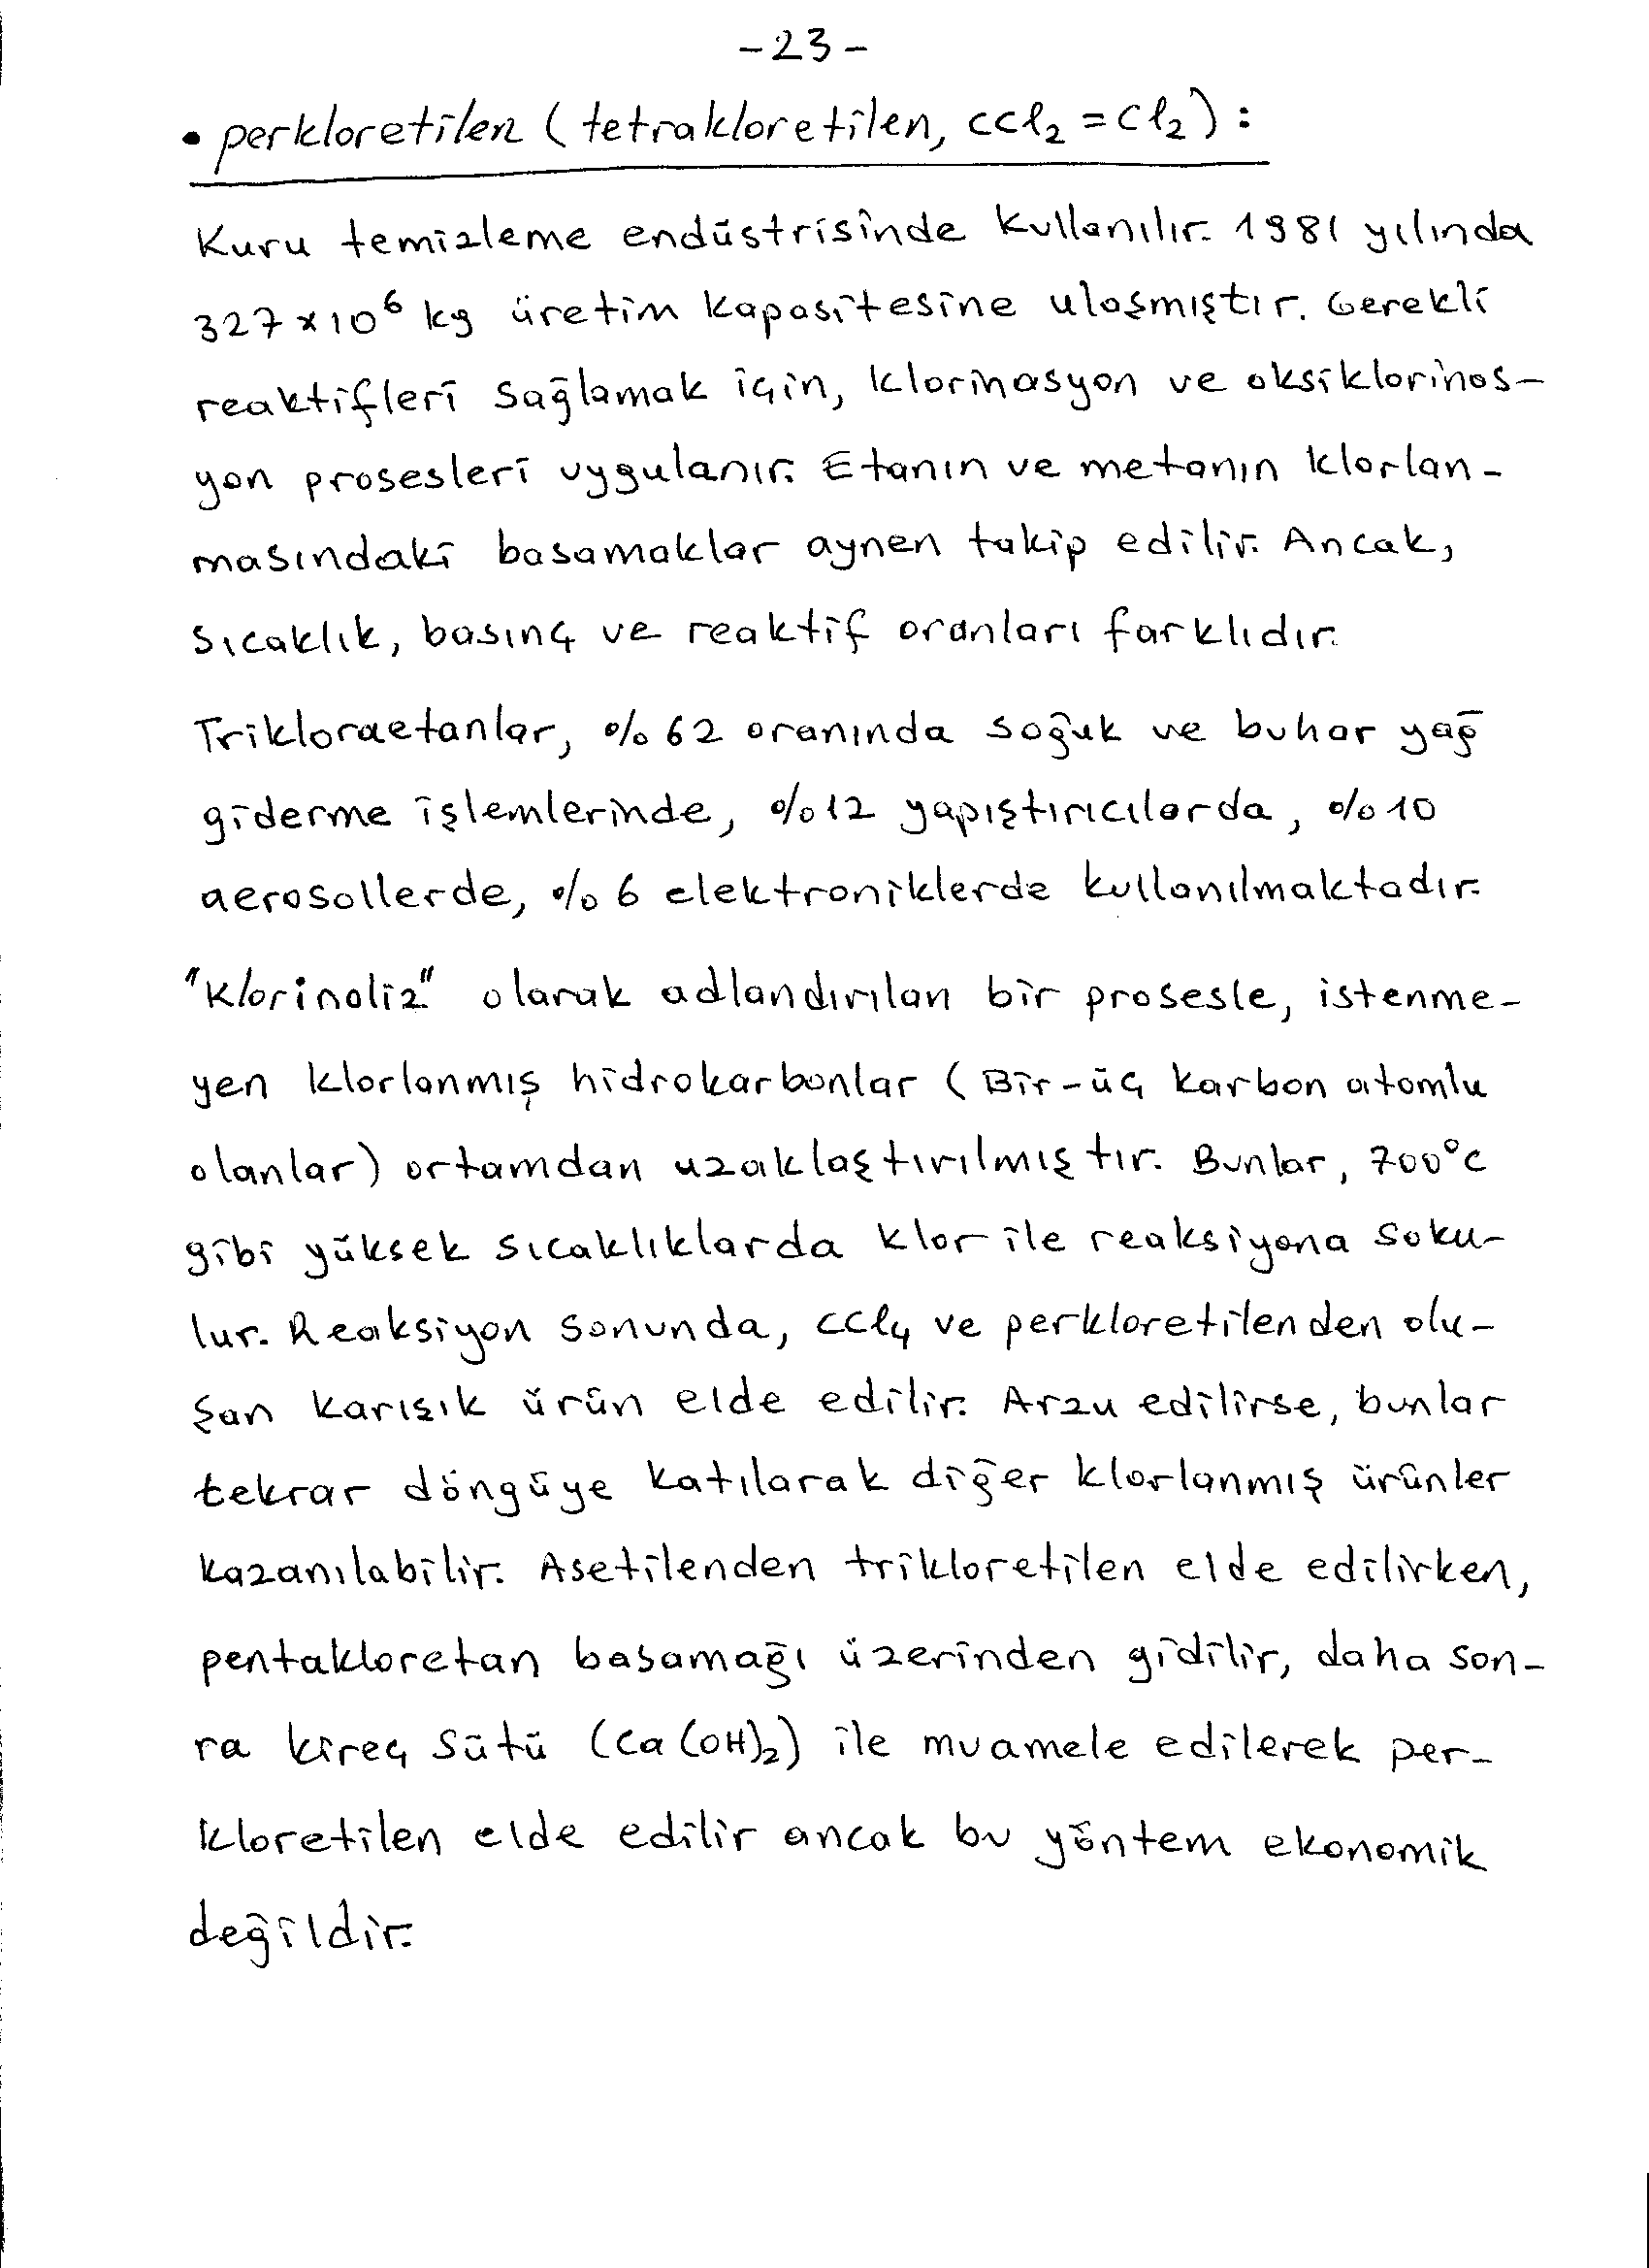 -23-
• perkloretilen (tetrakloretilen, CCl₂=Cl₂):
Kuru temizleme endüstrisinde kullanılır. 1981 yılında
327x10⁶ kg üretim kapasitesine ulaşmıştır. Gerekli
reaktifleri sağlamak için, klorinasyon ve oksiklorinas-
yon prosesleri uygulanır. Etanın ve metanın klorlan-
masındaki basamaklar aynen takip edilir. Ancak,
sıcaklık, basınç ve reaktif oranları farklıdır.
Trikloraetanlar, %62 oranında soğuk ve buhar yağ
giderme işlemlerinde, %12 yapıştırıcılarda, %10
aerosollerde, %6 elektroniklerde kullanılmaktadır.
"Klorinoliz" olarak adlandırılan bir prosesle, istenme-
yen klorlanmış hidrokarbonlar (Bir-üç karbon atomlu
olanlar) ortamdan uzaklaştırılmıştır. Bunlar, 700°C
gibi yüksek sıcaklıklarda klor ile reaksiyona soku-
lur. Reaksiyon sonunda, CCl₄ ve perkloretilenden olu-
şan karışık ürün elde edilir. Arzu edilirse, bunlar
tekrar döngüye katılarak diğer klorlanmış ürünler
kazanılabilir. Asetilenden trikloretilen elde edilirken,
pentakloretan basamağı üzerinden gidilir, daha son-
ra kireç sütü (Ca(OH)₂) ile muamele edilerek per-
kloretilen elde edilir ancak bu yöntem ekonomik
değildir.